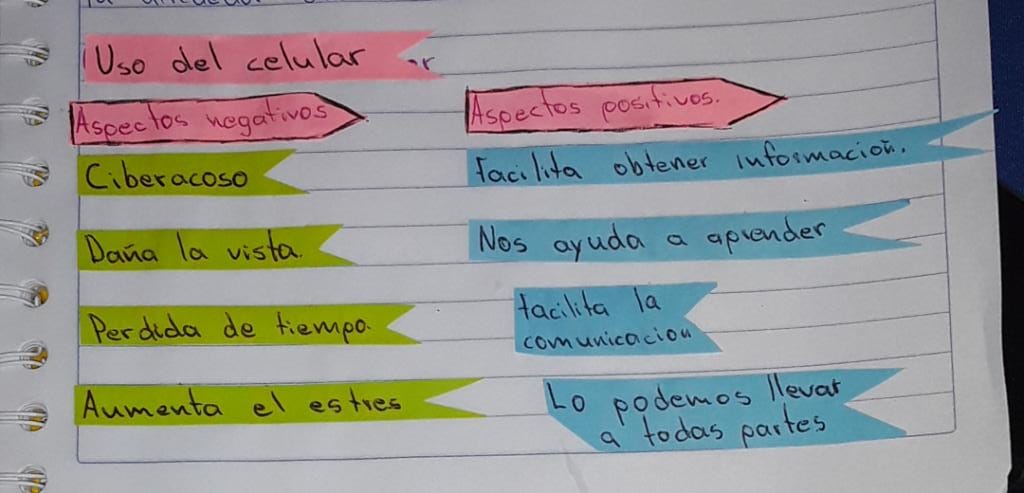 Uso del celular
Aspectos negativos
Ciberacoso
Daña la vista.
Perdida de tiempo.
Aumenta el estres
Aspectos positivos.
Facilita obtener información.
Nos ayuda a aprender
facilita la
comunicacion
Lo podemos llevar
a todas partes